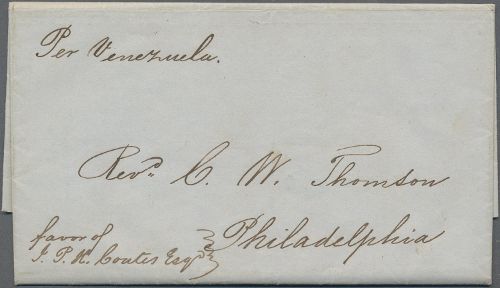 Per Venezuela.
Revd. C. W. Thomson
Philadelphia
favor of
J. P. H. Coates Esqr